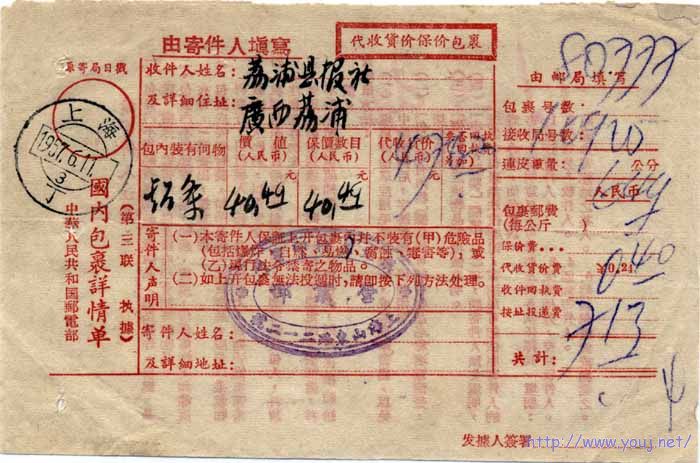 由寄件人填寫
代收貨价保价包裹
戳日局寄原
收件人姓名: 荔浦县报社
及詳細住址: 廣西荔浦
包內裝有何物
價值
(人民币)
保價数目
(人民币)
代收貨价
(人民币)
元
元
元
40.49
40.49
寄件人声明
(一)本寄件人保證上开包裹內并不裝有(甲)危险品
(乙)現行法令禁寄之物品。
(二)如上开包裹無法投遞时,請卽按下列方法处理。
寄件人姓名:
及詳細地址:
上海
1957.6.11.
3
國內包裹詳情单
(第三联 执據)
中華人民共和国郵電部
80777
由郵局填写
包裹号數:
接收局号數:
連皮重量: 公分
人民币
包裹郵費
(每公斤)
保价費
0.40
代收貨价費 ¥0.24
收件回执費
按址投递費
713
共計:
发據人簽署
http://www.youj.net/